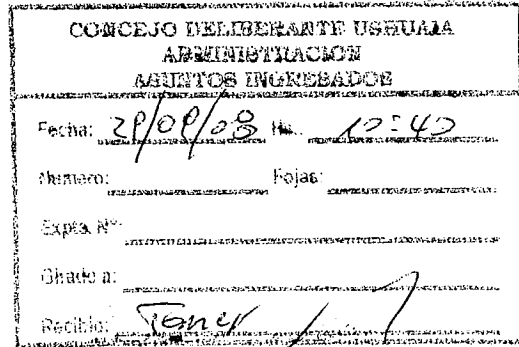 CONCEJO DELIBERANTE USHUAIA
ADMINISTRACION
ASUNTOS INGRESADOS
Fecha: Hs.
Numero: Fojas:
Expte. Nº
Girado a:
Recibio: